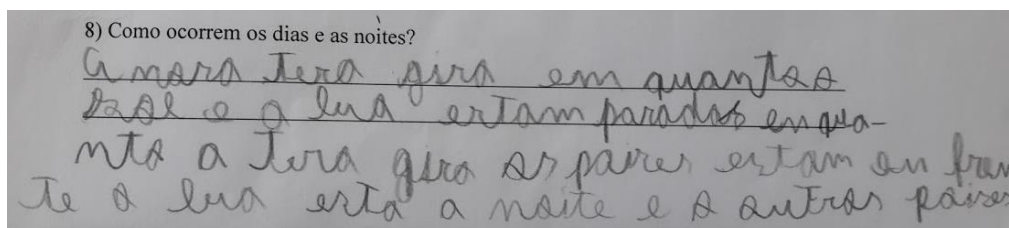 8) Como ocorrem os dias e as noites?
a nosra Tera gira em quantos o
sol e a lua estam parados enqua-
nto a Tera gira os paises estam en fran
te a lua está a noite e o outros paises